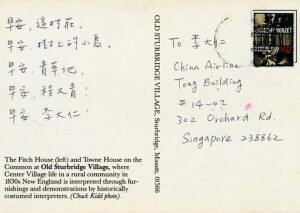 早安, 這村莊.
早安, 樹上的小鳥.
早安, 青草地.
早安, 程文青!
早安, 李大仁!
The Fitch House (left) and Towne House on the
Common at Old Sturbridge Village, where
Center Village life in a rural community in
1830s New England is interpreted through fur-
nishings and demonstrations by historically
costumed interpreters. (Chuck Kidd photo)
OLD STURBRIDGE VILLAGE, Sturbridge, Massts. 01566
To 李大仁
China Airline
Tong Building
#14-02
302 Orchard Rd.
Singapore 238862
VERZET